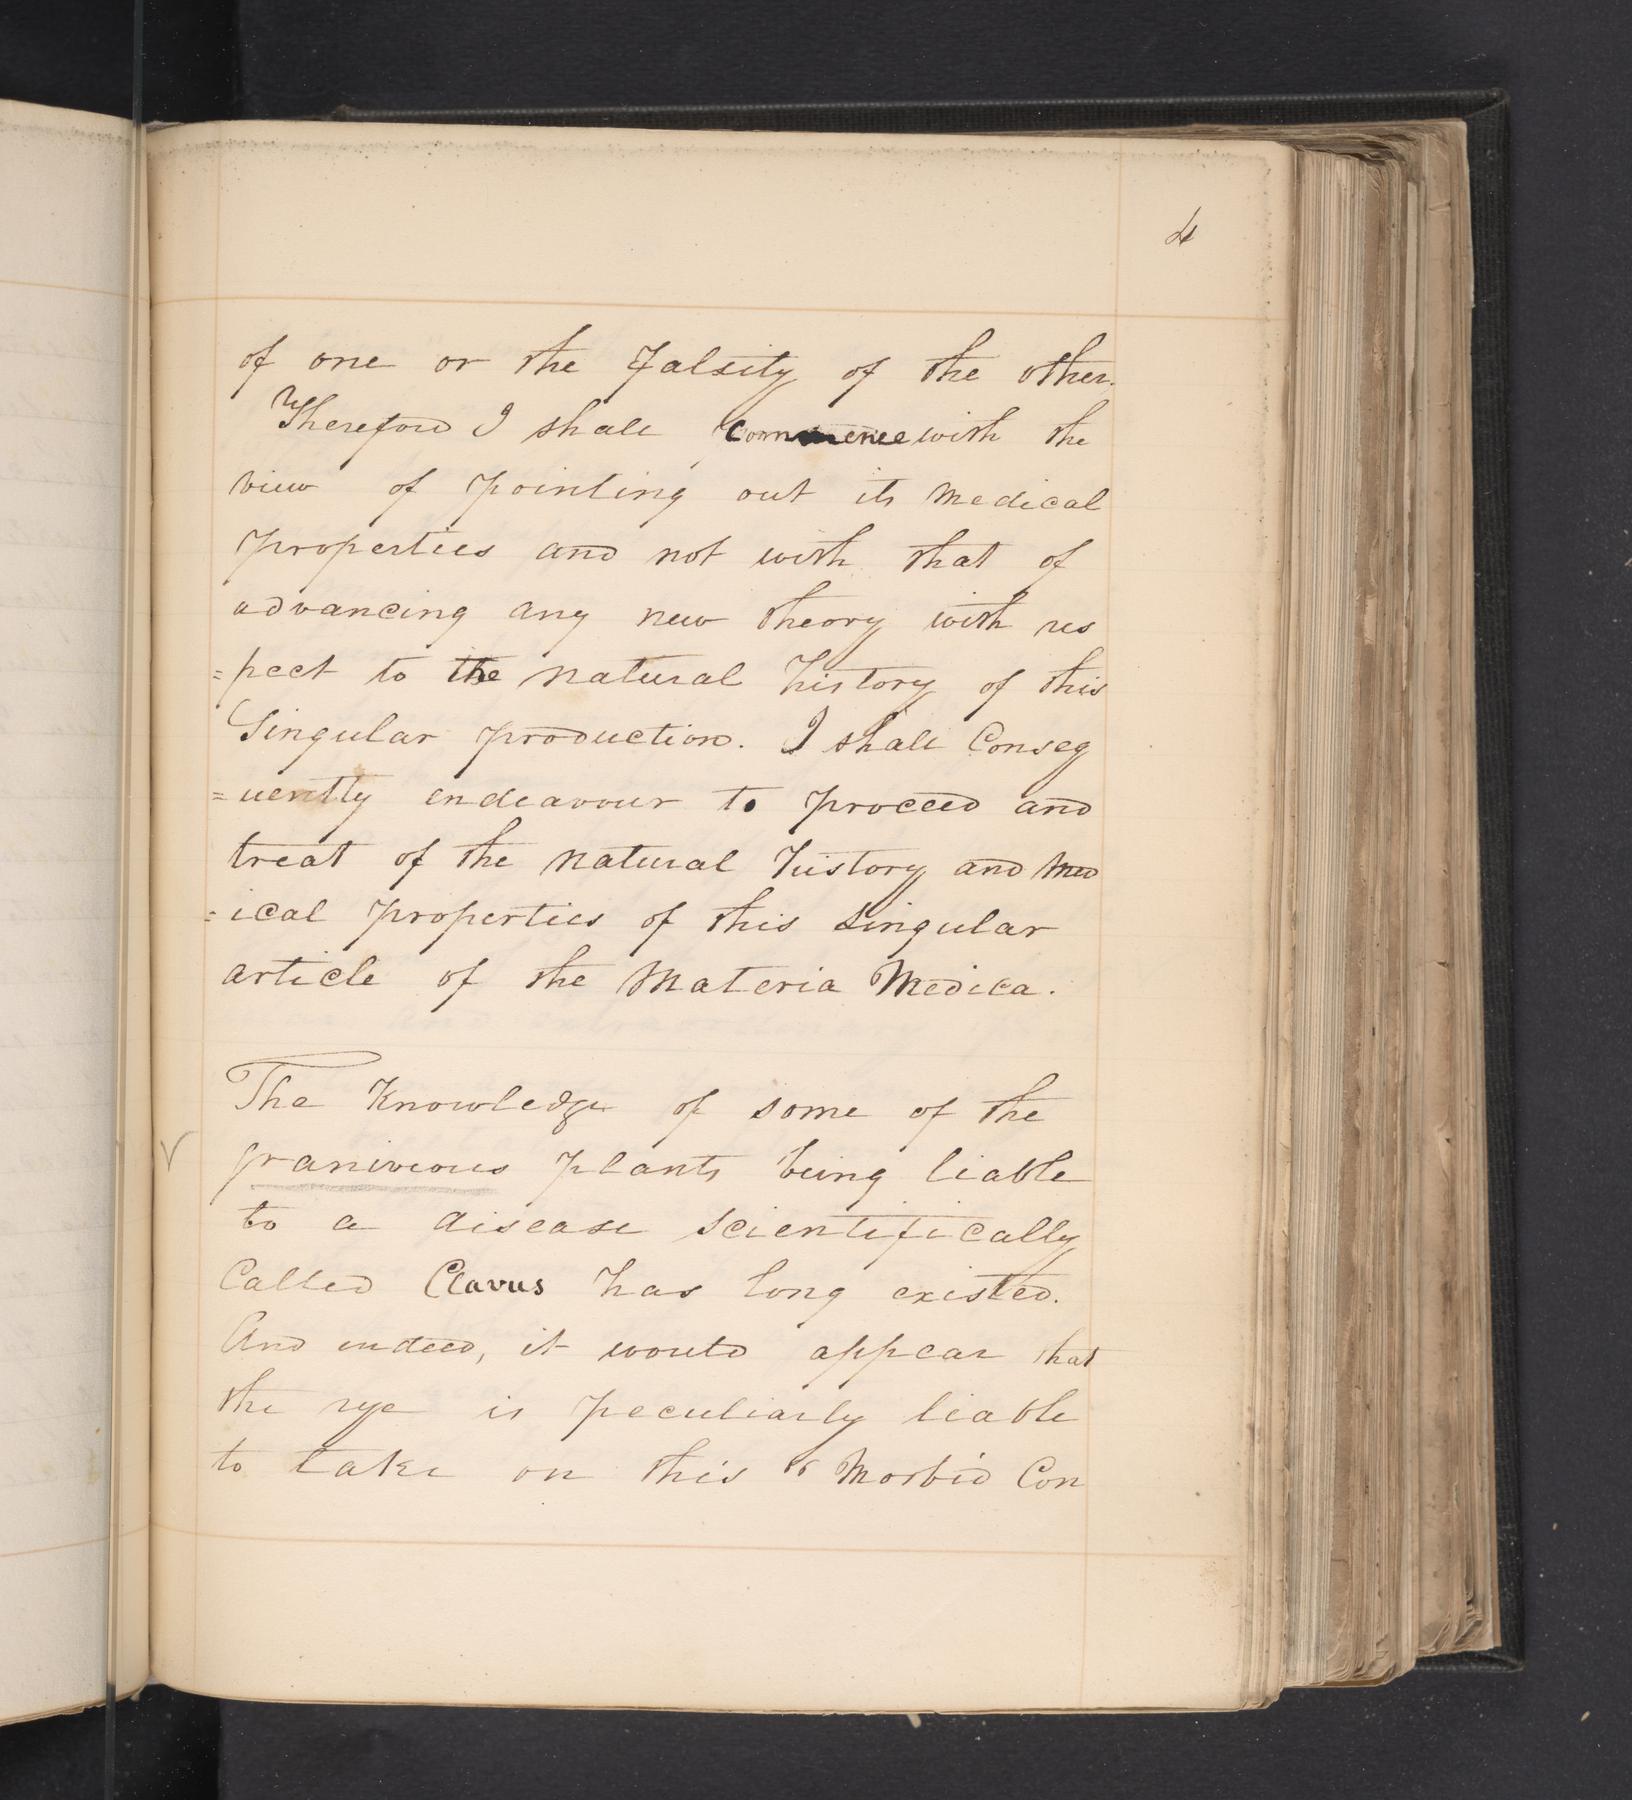 4
of one or the Falsity of the other.
Therefore I shall commence with the
view of pointing out its medical
properties and not with that of
advancing any new theory with res
=pect to the natural history of this
Singular production. I shall Conseq
=uently endeavour to proceed and
treat of the natural history and Med
=ical properties of this singular
article of the Materia Medica.
The Knowledge of some of the
granivious plants being liable
to a disease scientifically
Called Clavus has long existed.
And indeed, it would appear that
the rye is peculiarly liable
to take on this " Morbid Con